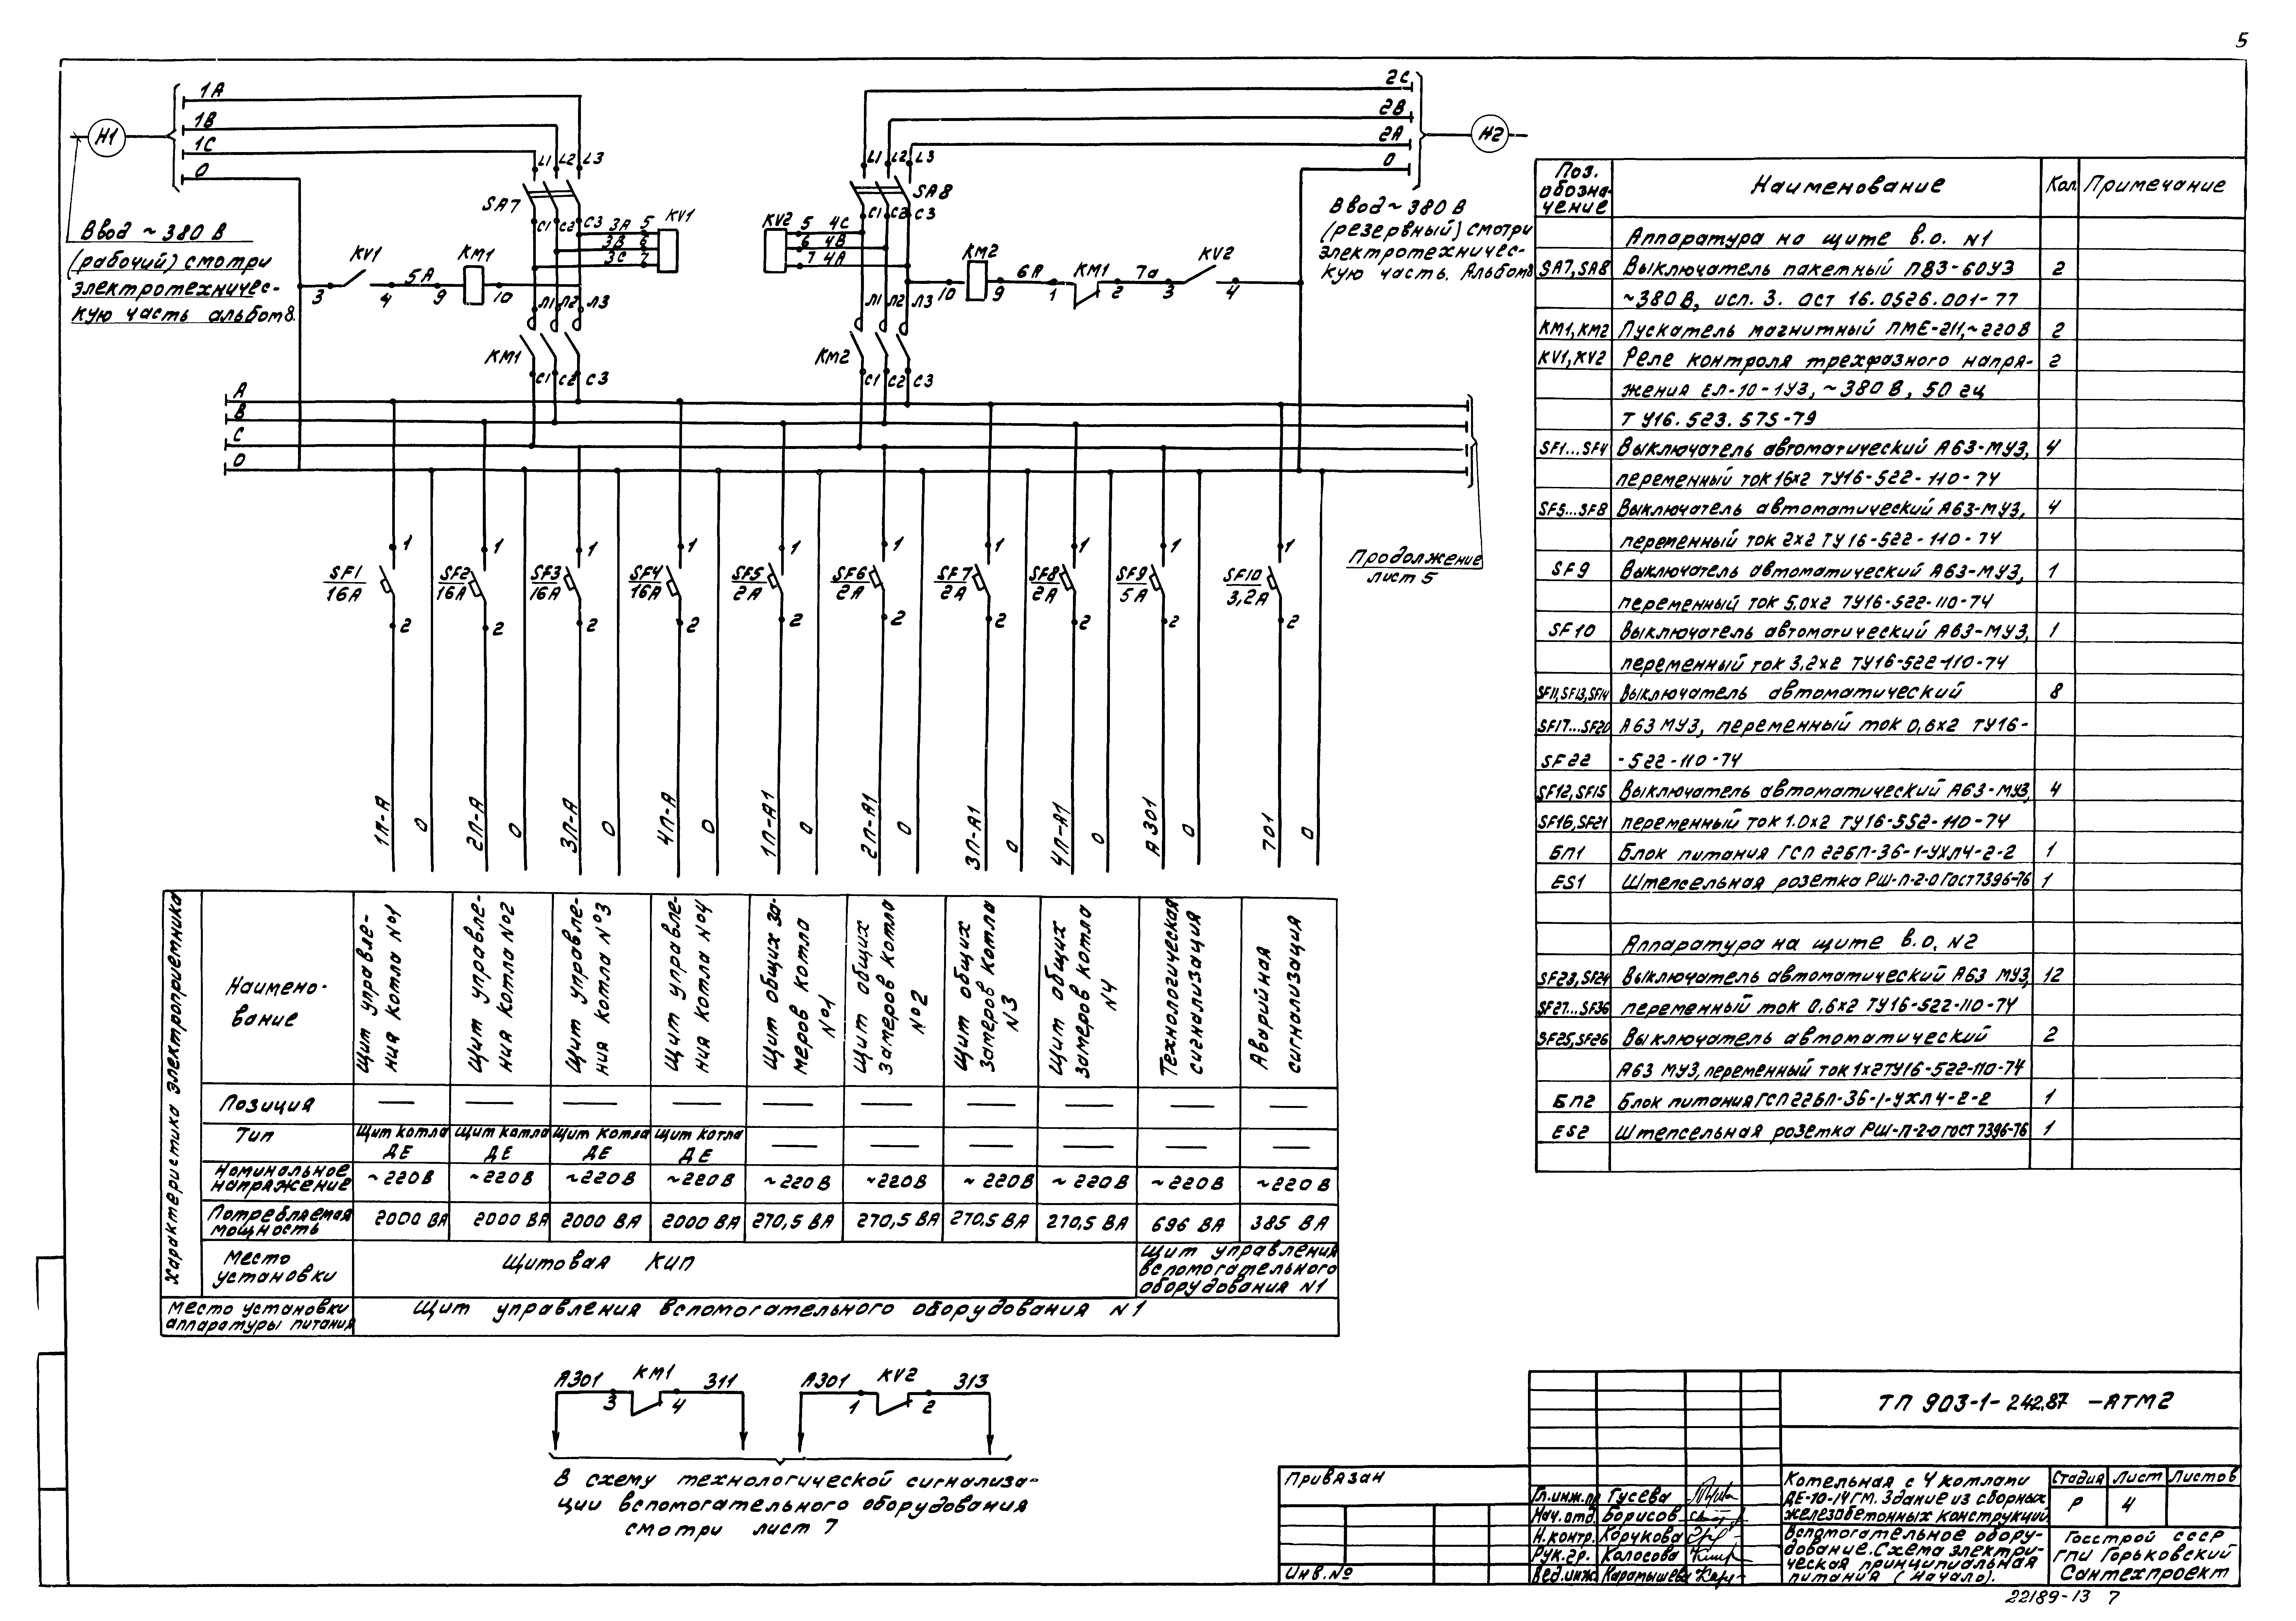 5
1А
1В
1С
0
Н1
Ввод ~ 380 В
(рабочий) смотри
электротехничес-
кую часть альбом 8.
L1 L2 L3
SA7
С1 С2 С3
3А 5
3В 6
3С 7
KV1
KV1
3 4
5А
KM1
9 10
Л1 Л2 Л3
KM1
С1 С2 С3
2С
2В
2А
0
Н2
L1 L2 L3
SA8
С1 С2 С3
KV2
5 4С
6 4В
7 4А
KM2
10 9
6А
KM1
1 2
7а
KV2
3 4
Л1 Л2 Л3
KM2
С1 С2 С3
Ввод ~ 380 В
(резервный) смотри
электротехничес-
кую часть. Альбом 8
А
В
С
0
Продолжение
лист 5
1 1 1 1 1 1 1 1 1 1
SF1 SF2 SF3 SF4 SF5 SF6 SF7 SF8 SF9 SF10
16А 16А 16А 16А 2А 2А 2А 2А 5А 3,2А
2 2 2 2 2 2 2 2 2 2
1П-А 0 2П-А 0 3П-А 0 4П-А 0 1П-А1 0 2П-А1 0 3П-А1 0 4П-А1 0 А301 0 701 0
Характеристика электроприемника
Наимено-
вание
Щит управле-
ния котла №1
Щит управле-
ния котла №2
Щит управле-
ния котла №3
Щит управле-
ния котла №4
Щит общих за-
меров котла
№1
Щит общих
замеров котла
№2
Щит общих
замеров котла
№3
Щит общих
замеров котла
N4
Технологическая
сигнализация
Аварийная
сигнализация
Позиция — — — — — — — — — —
Тип Щит котла Щит котла Щит котла Щит котла — — — — — —
ДЕ ДЕ ДЕ ДЕ
Номинальное
напряжение ~220В ~220В ~220В ~220В ~220В ~220В ~220В ~220В ~220В ~220В
Потребляемая
мощность 2000 ВА 2000 ВА 2000 ВА 2000 ВА 270,5 ВА 270,5 ВА 270,5 ВА 270,5 ВА 696 ВА 385 ВА
Место
установки
Щитовая КИП
Щит управления
вспомогательного
оборудования N1
Место установки
аппаратуры питания
Щит управления вспомогательного оборудования N1
А301 KM1 311
3 4
А301 KV2 313
1 2
В схему технологической сигнализа-
ции вспомогательного оборудования
смотри лист 7
Поз.
обозна-
чение
Наименование Кол Примечание
Аппаратура на щите в.о. N1
SA7, SA8 Выключатель пакетный ПВ3-60У3 2
~380 В, исп. 3. ОСТ 16.0526.001-77
KM1, KM2 Пускатель магнитный ПМЕ-211, ~220В 2
KV1, KV2 Реле контроля трехфазного напря- 2
жения ЕЛ-10-1У3, ~380 В, 50 гц
ТУ16.523.575-79
SF1...SF4 Выключатель автоматический А63-МУ3, 4
переменный ток 16х2 ТУ16-522-110-74
SF5...SF8 Выключатель автоматический А63-МУ3, 4
переменный ток 2х2 ТУ16-522-110-74
SF9 Выключатель автоматический А63-МУ3, 1
переменный ток 5,0х2 ТУ16-522-110-74
SF10 Выключатель автоматический А63-МУ3, 1
переменный ток 3,2х2 ТУ16-522-110-74
SF11, SF13, SF14 Выключатель автоматический 8
SF17...SF20 А63 МУ3, переменный ток 0,6х2 ТУ16-
SF22 -522-110-74
SF12, SF15 Выключатель автоматический А63-МУ3, 4
SF16, SF21 переменный ток 1.0х2 ТУ16-552-110-74
БП1 Блок питания ГСП 22БП-36-1-УХЛ4-2-2 1
ES1 Штепсельная розетка РШ-П-2-0 ГОСТ7396-76 1
Аппаратура на щите в.о. N2
SF23, SF24 Выключатель автоматический А63 МУ3, 12
SF27...SF36 переменный ток 0,6х2 ТУ16-522-110-74
SF25, SF26 Выключатель автоматический 2
А63 МУ3, переменный ток 1х2ТУ16-522-110-74
БП2 Блок питания ГСП 22БП-36-1-УХЛ4-2-2 1
ES2 Штепсельная розетка РШ-П-2-0 ГОСТ 7396-76 1
Привязан
Инв.№
ТП 903-1-242.87 -АТМ2
Гл.инж.пр Гусева
Нач.отд. Борисов
Н.контр. Корчкова
Рук.гр. Колосова
Вед.инж. Карамышева
Котельная с 4 котлами
ДЕ-10-14ГМ. Здание из сборных
железобетонных конструкций
Стадия Лист Листов
Р 4
Вспомогательное обору-
дование. Схема электри-
ческая принципиальная
питания (начало).
Госстрой СССР
ГПИ Горьковский
Сантехпроект
22189-13 7